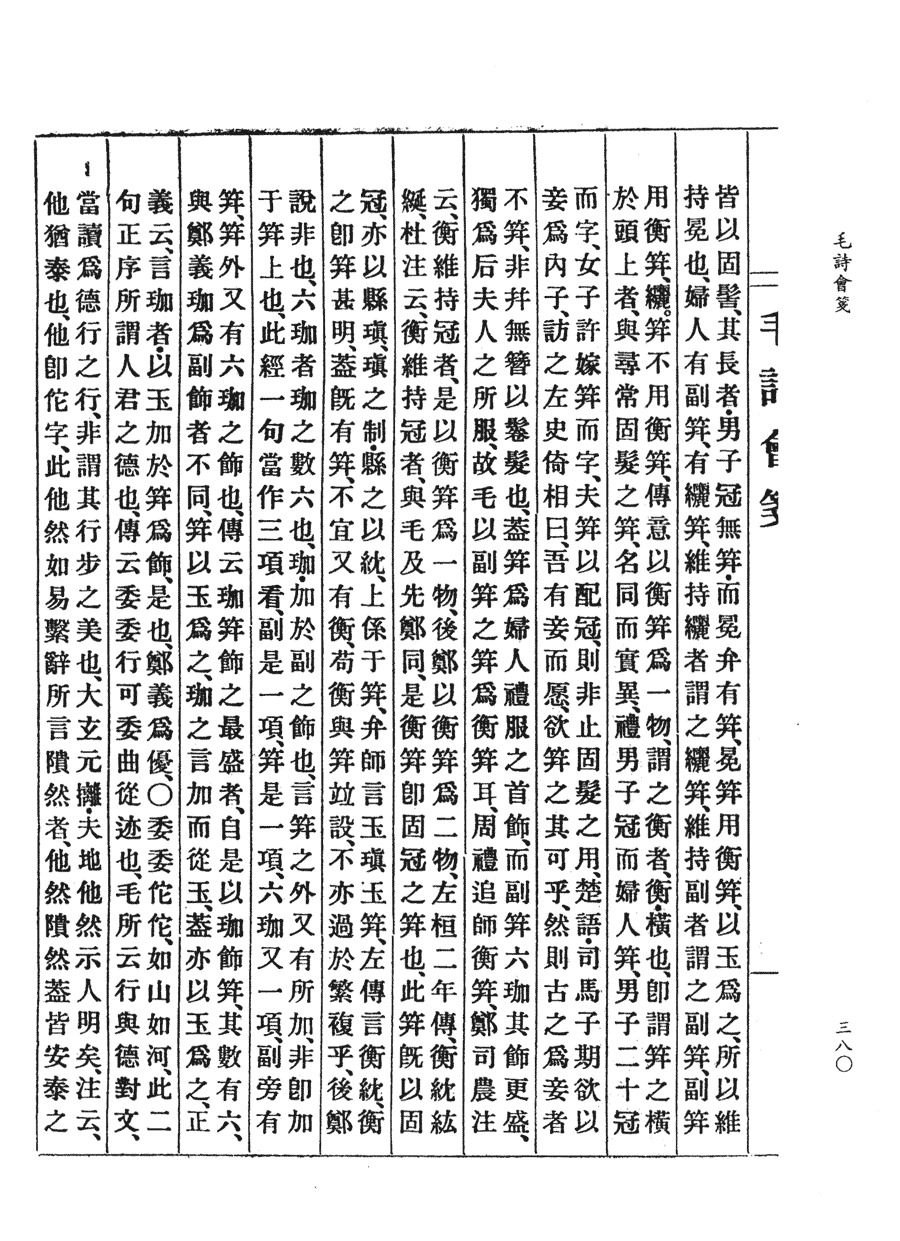 毛詩會箋
三八〇
毛詩會箋
皆以固髻、其長者、男子冠無笄、而冕弁有笄、冕笄用衡笄、以玉爲之、所以維
持冕也、婦人有副笄、有纚笄、維持纚者謂之纚笄、維持副者謂之副笄、副笄
用衡笄、纚笄不用衡笄、傳意以衡笄爲一物、謂之衡者、衡橫也、卽謂笄之橫
於頭上者、與尋常固髮之笄、名同而實異、禮男子冠而婦人笄、男子二十冠
而字、女子許嫁笄而字、夫笄以配冠、則非止固髮之用、楚語、司馬子期欲以
妾爲內子、訪之左史倚相曰、吾有妾而愿、欲笄之其可乎、然則古之爲妾者
不笄、非幷無簪以鬈髮也、蓋笄爲婦人禮服之首飾、而副笄六珈其飾更盛、
獨爲后夫人之所服、故毛以副笄之笄爲衡笄耳、周禮追師衡笄、鄭司農注
云、衡維持冠者、是以衡笄爲一物、後鄭以衡笄爲二物、左桓二年傳、衡紞紘
綖、杜注云、衡維持冠者、與毛及先鄭同、是衡笄卽固冠之笄也、此笄旣以固
冠、亦以縣瑱、瑱之制、縣之以紞、上係于笄、弁師言玉瑱玉笄、左傳言衡紞、衡
之卽笄甚明、蓋旣有笄、不宜又有衡、苟衡與笄竝設、不亦過於繁複乎、後鄭
說非也、六珈者珈之數六也、珈、加於副之飾也、言笄之外又有所加、非卽加
于笄上也、此經一句當作三項看、副是一項、笄是一項、六珈又一項、副旁有
笄、笄外又有六珈之飾也、傳云珈笄飾之最盛者、自是以珈飾笄、其數有六、
與鄭義珈爲副飾者不同、笄以玉爲之、珈之言加而從玉、蓋亦以玉爲之、正
義云、言珈者、以玉加於笄爲飾、是也、鄭義爲優、〇委委佗佗、如山如河、此二
句正序所謂人君之德也、傳云委委行可委曲從迹也、毛所云行與德對文、
當讀爲德行之行、非謂其行步之美也、大玄元攡、夫地他然示人明矣、注云、
他猶泰也、他卽佗字、此他然如易繫辭所言隤然者、他然隤然蓋皆安泰之